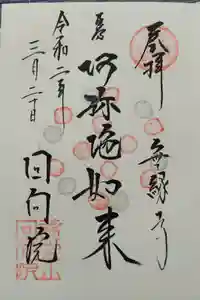 奉拝
無縁寺
阿弥陀如来
令和二年
三月二十日
回向院